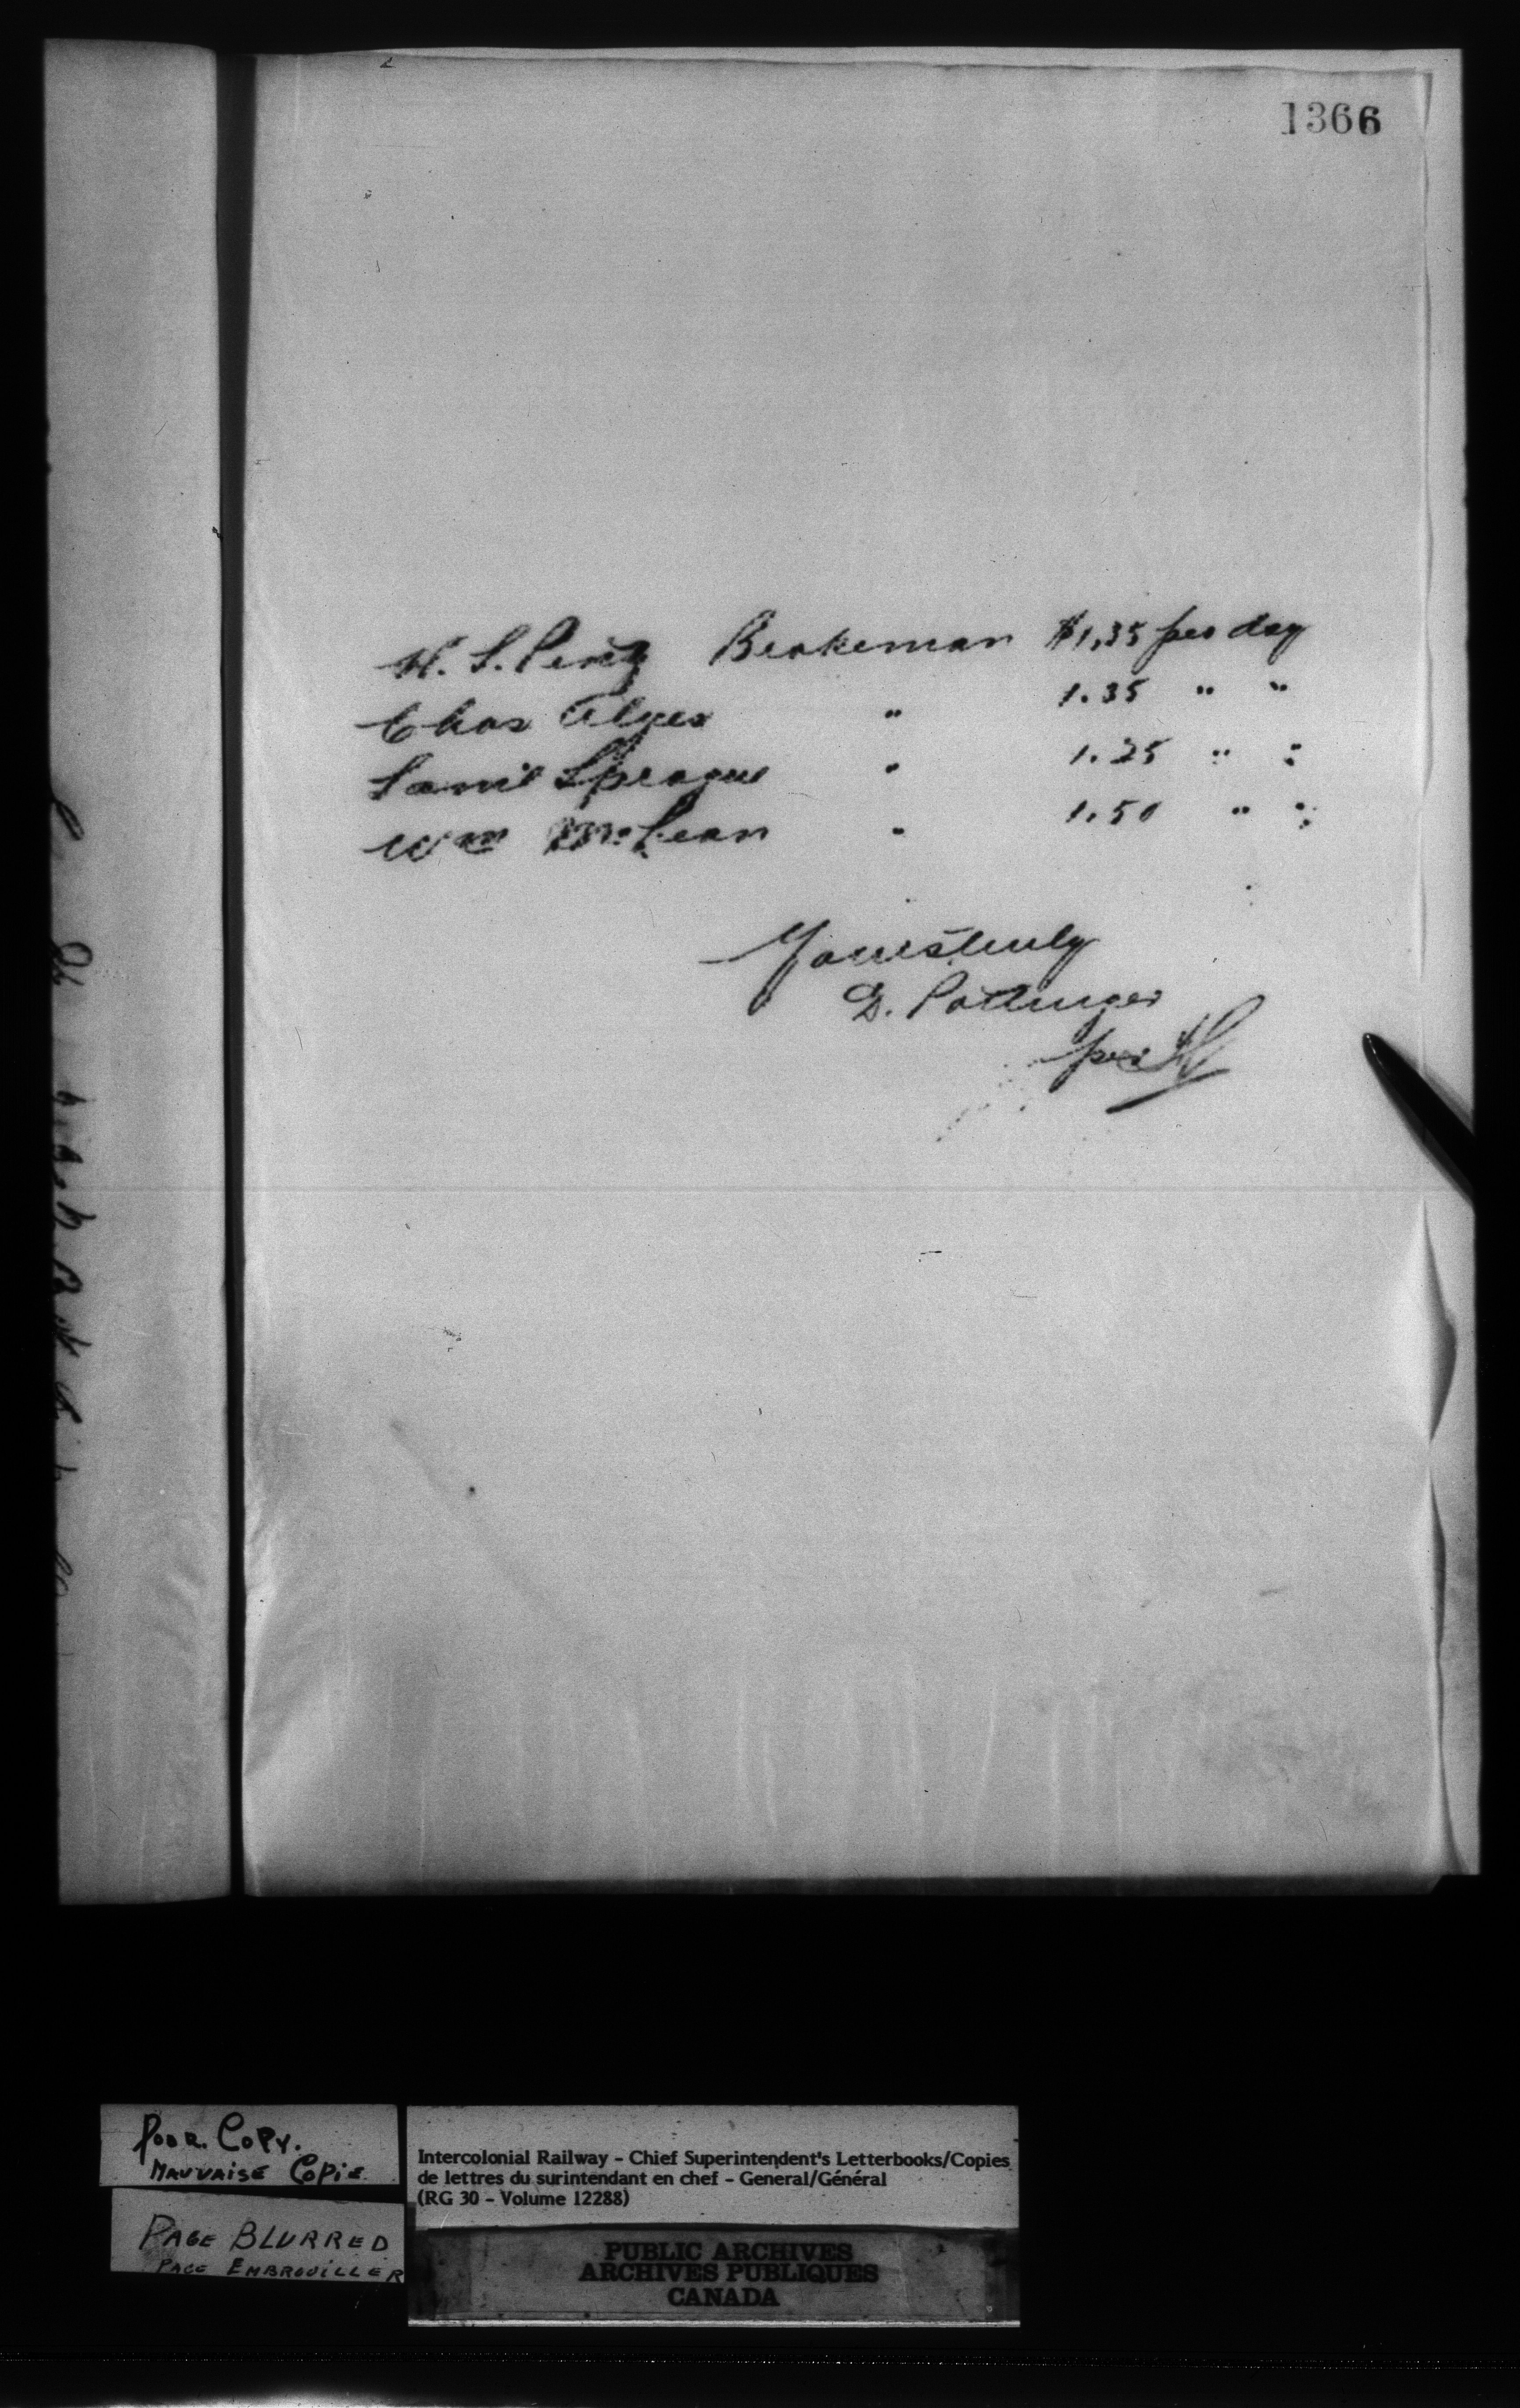 1366
H. S. Pentz Brakeman $1.35 per day
Chas Alger " 1.35 " "
Saml Sprague " 1.25 " "
Wm McLean " 1.50 " "
Yours truly
D. Pottinger
per
POOR COPY.
MAUVAISE COPIE
PAGE BLURRED
PAGE EMBROUILLER
Intercolonial Railway - Chief Superintendent's Letterbooks/Copies
de lettres du surintendant en chef - General/Général
(RG 30 - Volume 12288)
PUBLIC ARCHIVES
ARCHIVES PUBLIQUES
CANADA